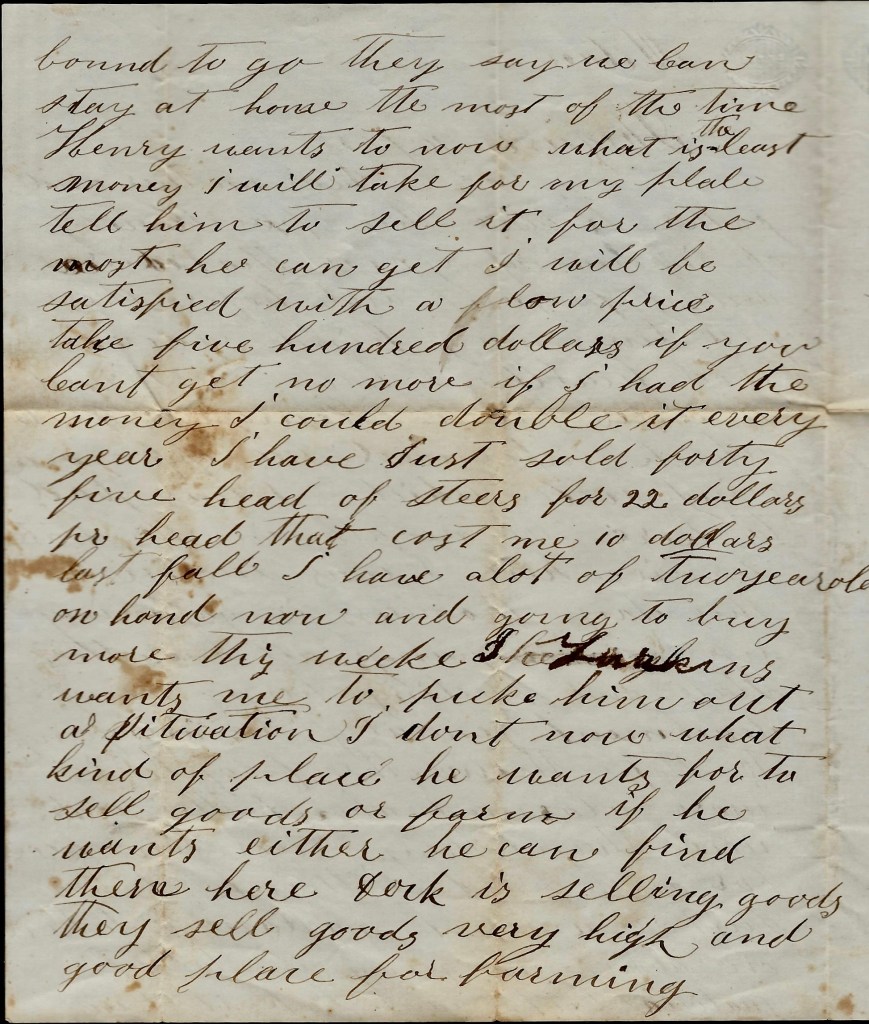 bound to go they say we can
stay at home the most of the time
Henry wants to now what is the least
money i will take for my place
tell him to sell it for the
most he can get I will be
satisfied with a low price
take five hundred dollars if you
cant get no more if I had the
money I could double it every
year I have Just sold forty
five head of steers for 22 dollars
pr head that cost me 10 dollars
last fall I have alot of Twoyearold
on hand now and going to buy
more this weeke
wants me to picke him out
a situation I dont now what
kind of place he wants for to
sell goods or farm if he
wants either he can find
them here Dork is selling goods
they sell goods very high and
good place for farming